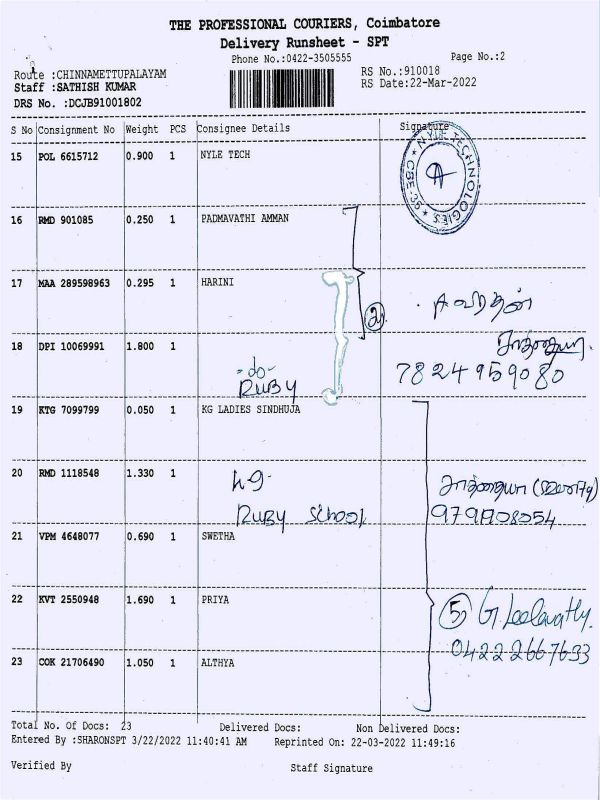 THE PROFESSIONAL COURIERS, Coimbatore
Delivery Runsheet - SPT
Phone No.:0422-3505555 Page No.:2
Route :CHINNAMETTUPALAYAM RS No.:910018
Staff :SATHISH KUMAR RS Date:22-Mar-2022
DRS No. :DCJB91001802
S No Consignment No Weight PCS Consignee Details Signature
15 POL 6615712 0.900 1 NYLE TECH
NYLE TECHNOLOGIES * CBE-35 *
16 RMD 901085 0.250 1 PADMAVATHI AMMAN
17 MAA 289598963 0.295 1 HARINI
2
18 DPI 10069991 1.800 1
-do-
Ruby
7824959080
19 KTG 7099799 0.050 1 KG LADIES SINDHUJA
20 RMD 1118548 1.330 1
Ruby School
21 VPM 4648077 0.690 1 SWETHA
22 KVT 2550948 1.690 1 PRIYA
5 G. Leelavathy.
23 COK 21706490 1.050 1 ALTHYA
Total No. Of Docs: 23 Delivered Docs: Non Delivered Docs:
Entered By :SHARONSPT 3/22/2022 11:40:41 AM Reprinted On: 22-03-2022 11:49:16
Verified By Staff Signature